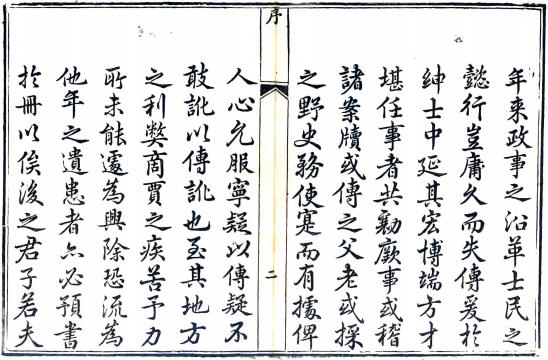 年來政事之沿革士民之
懿行豈庸久而失傳爰於
紳士中延其宏博端方才
堪任事者共勷厥事或稽
諸案牘或傳之父老或採
之野史務使寔而有據俾
序
二
人心允服寧疑以傳疑不
敢訛以傳訛也至其地方
之利弊商賈之疾苦予力
所未能遽為興除恐流為
他年之遺患者亦必預書
於冊以俟後之君子若夫